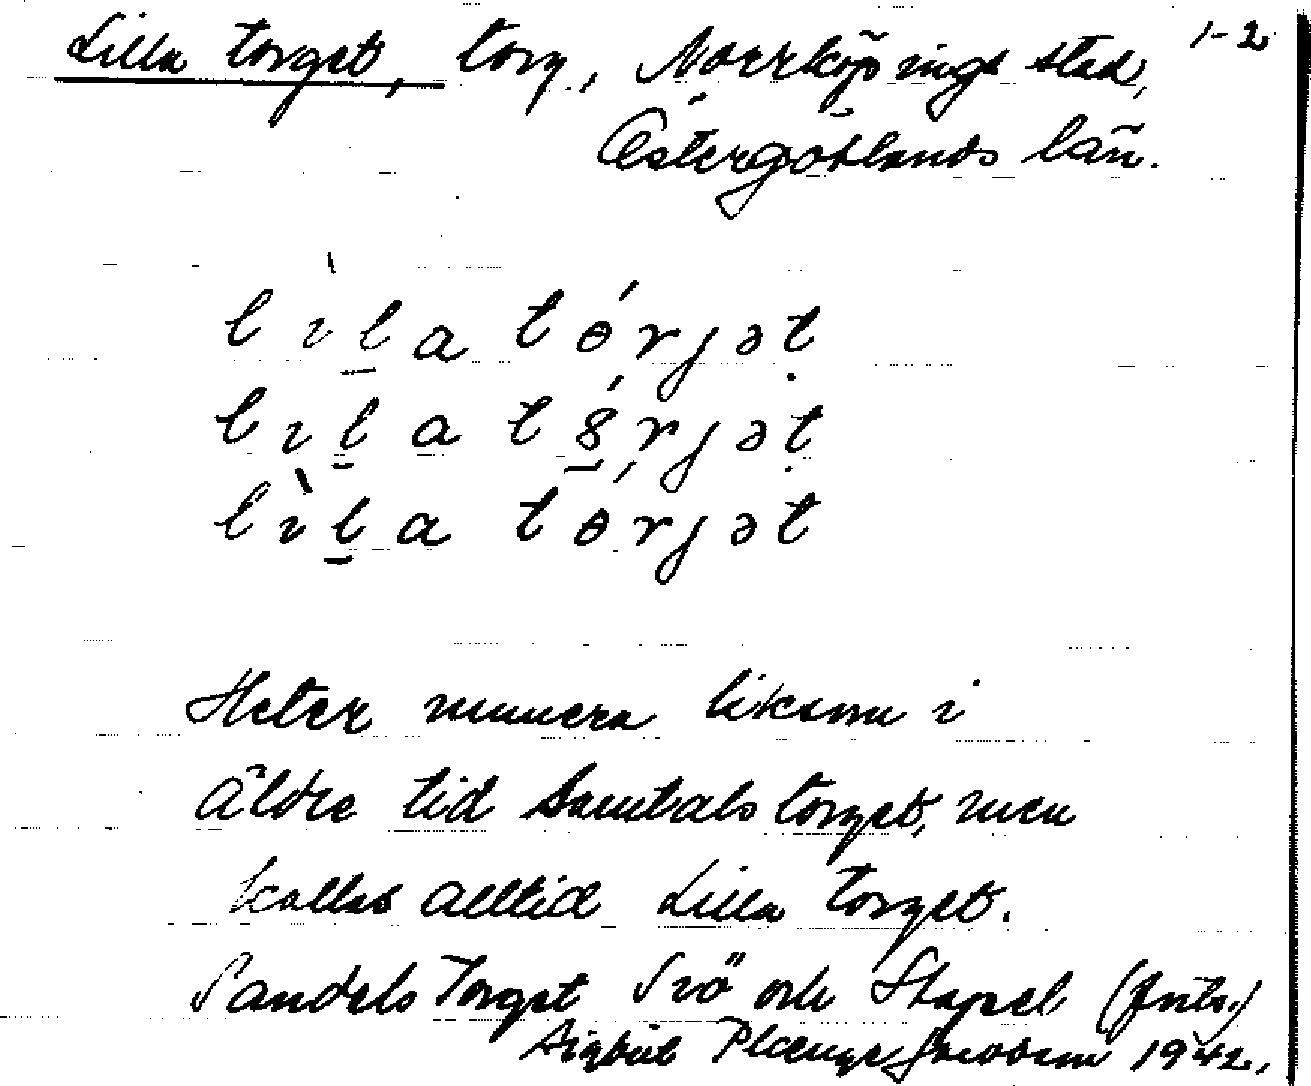 Lilla torget, torg, Norrköpings stad, 1-2
Östergötlands län.
lìḻa tɵ́rjəṭ
lıḻa t8́rjəṭ
lìḻa tɵ́rjət
Heter numera liksom i
äldre tid Sambals torget, men
kallas alltid Lilla torget.
Sandels Torget Svö och Stapel
1942.